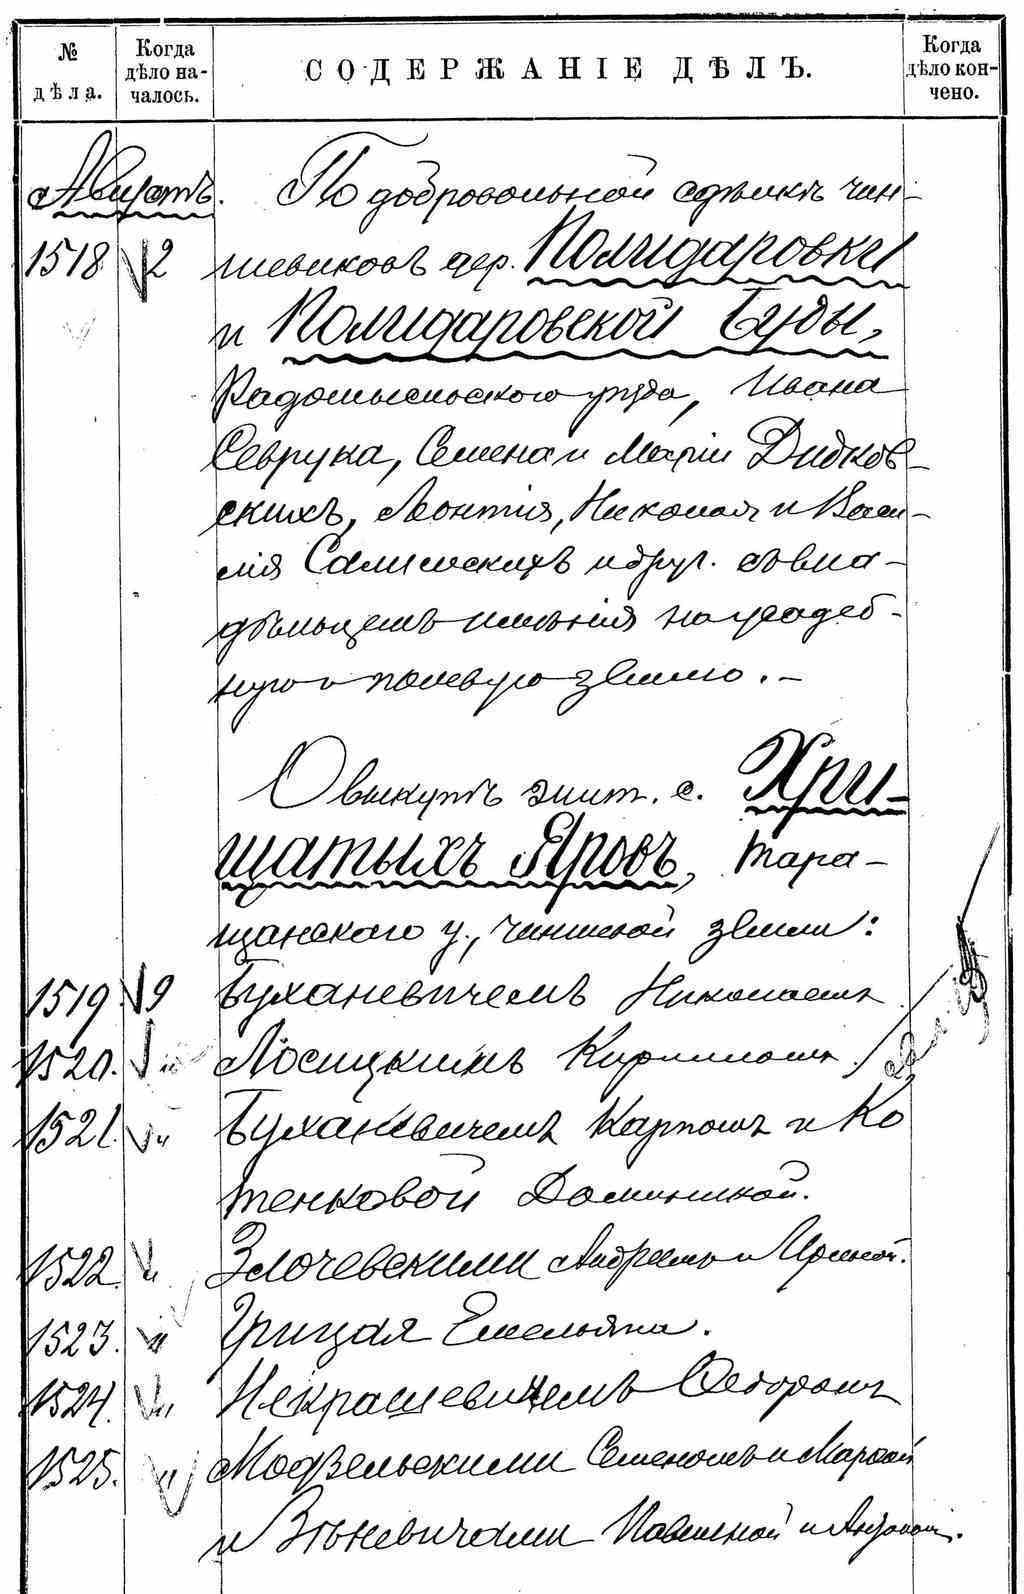 № дѣла.
Когда дѣло на-
чалось.
СОДЕРЖАНІЕ ДѢЛЪ.
Когда
дѣло кон-
чено.
Августъ. По добровольной сдѣлкѣ чин-
1518 2 шевиковъ дер. Полидаровки
и Полидаровской Буды,
Радомысльского уѣзда, Ивана
Севрука, Семена и Маріи Дидков-
скихъ, Леонтія, Николая и Васи-
лія Салисскихъ и друг. съ вла-
дѣльцемъ имѣнія на усадеб-
ную и полевую землю.-
О выкупѣ жит. с. Хри-
щатыхъ Яровъ, Тара-
щанскаго у., чиншевой земли:
1519 9 Буханевичемъ Николаемъ
1520. " Лосицкимъ Кирилломъ
1521. " Буханевичемъ Карпомъ и Ко
тенковой Доминикой.
1522. " Злочевскими Андреемъ и Ириной.
1523. " Грицая Емельяна.
1524. " Некрашевичемъ Федоромъ
1525. " Модзельскими Семеномъ и Марѳой
и Зѣневичами Павлиной и Антоном.